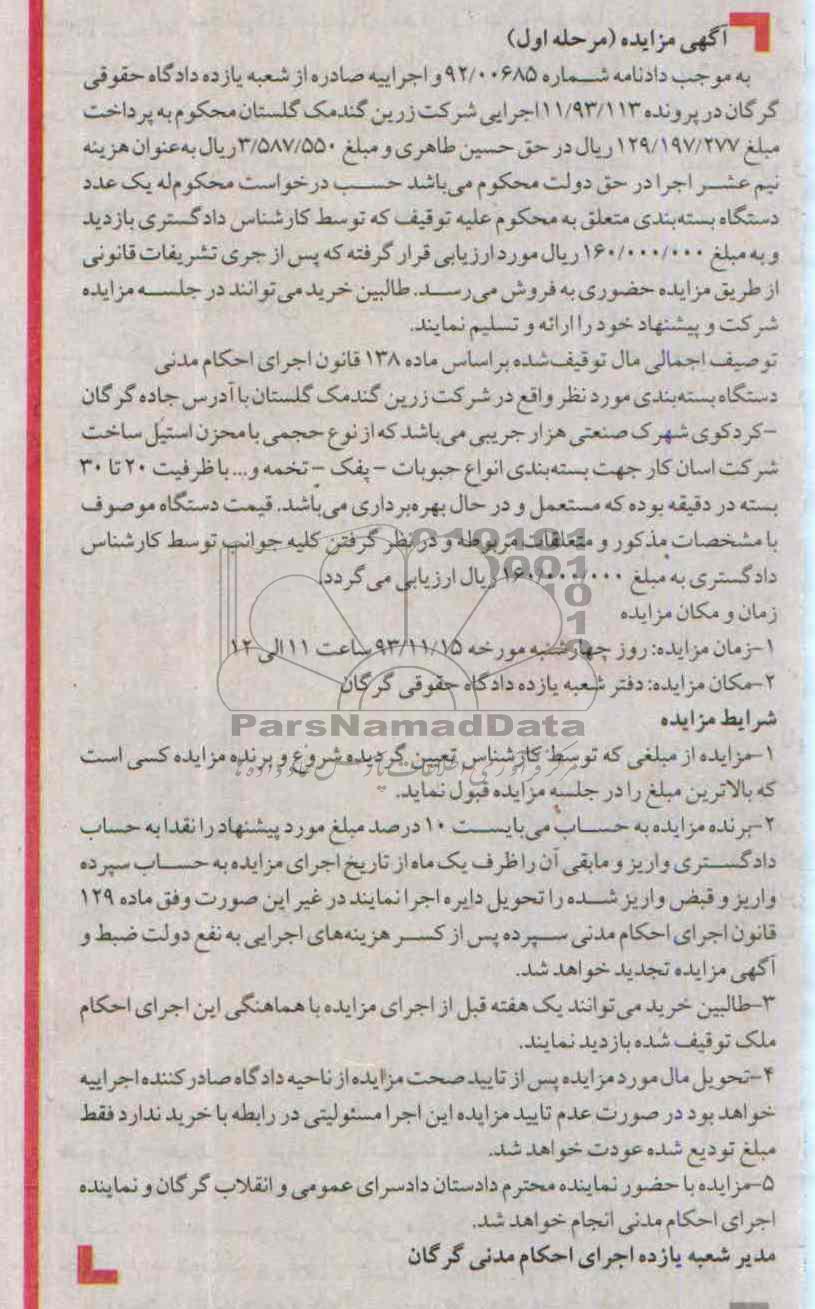 آگهی مزایده (مرحله اول)
به موجب دادنامه شماره ۹۲/۰۰۶۸۵ و اجراییه صادره از شعبه یازده دادگاه حقوقی
گرگان در پرونده ۱۱/۹۳/۱۱۳ اجرایی شرکت زرین گندمک گلستان محکوم به پرداخت
مبلغ ۱۲۹/۱۹۷/۲۷۷ ریال در حق حسین طاهری و مبلغ ۳/۵۸۷/۵۵۰ ریال به‌عنوان هزینه
نیم عشر اجرا در حق دولت محکوم می‌باشد حسب درخواست محکوم‌له یک عدد
دستگاه بسته‌بندی متعلق به محکوم علیه توقیف که توسط کارشناس دادگستری بازدید
و به مبلغ ۱۶۰/۰۰۰/۰۰۰ ریال مورد ارزیابی قرار گرفته که پس از جری تشریفات قانونی
از طریق مزایده حضوری به فروش می‌رسد. طالبین خرید می‌توانند در جلسه مزایده
شرکت و پیشنهاد خود را ارائه و تسلیم نمایند.
توصیف اجمالی مال توقیف‌شده براساس ماده ۱۳۸ قانون اجرای احکام مدنی
دستگاه بسته‌بندی مورد نظر واقع در شرکت زرین گندمک گلستان با آدرس جاده گرگان
-کردکوی شهرک صنعتی هزار جریبی می‌باشد که از نوع حجمی با مخزن استیل ساخت
شرکت اسان کار جهت بسته‌بندی انواع حبوبات - پفک - تخمه و... با ظرفیت ۲۰ تا ۳۰
بسته در دقیقه بوده که مستعمل و در حال بهره‌برداری می‌باشد. قیمت دستگاه موصوف
با مشخصات مذکور و متعلقات مربوطه و در نظر گرفتن کلیه جوانب توسط کارشناس
دادگستری به مبلغ ۱۶۰/۰۰۰/۰۰۰ ریال ارزیابی می‌گردد.
زمان و مکان مزایده
۱-زمان مزایده: روز چهارشنبه مورخه ۹۳/۱۱/۱۵ ساعت ۱۱ الی ۱۲
۲-مکان مزایده: دفتر شعبه یازده دادگاه حقوقی گرگان
ParsNamadData
شرایط مزایده
۱-مزایده از مبلغی که توسط کارشناس تعیین گردیده شروع و برنده مزایده کسی است
که بالاترین مبلغ را در جلسه مزایده قبول نماید.
۲-برنده مزایده به حساب می‌بایست ۱۰ درصد مبلغ مورد پیشنهاد را نقدا به حساب
دادگستری واریز و مابقی آن را ظرف یک ماه از تاریخ اجرای مزایده به حساب سپرده
واریز و قبض واریز شده را تحویل دایره اجرا نمایند در غیر این صورت وفق ماده ۱۲۹
قانون اجرای احکام مدنی سپرده پس از کسر هزینه‌های اجرایی به نفع دولت ضبط و
آگهی مزایده تجدید خواهد شد.
۳-طالبین خرید می‌توانند یک هفته قبل از اجرای مزایده با هماهنگی این اجرای احکام
ملک توقیف شده بازدید نمایند.
۴-تحویل مال مورد مزایده پس از تایید صحت مزایده از ناحیه دادگاه صادرکننده اجراییه
خواهد بود در صورت عدم تایید مزایده این اجرا مسئولیتی در رابطه با خرید ندارد فقط
مبلغ تودیع شده عودت خواهد شد.
۵-مزایده با حضور نماینده محترم دادستان دادسرای عمومی و انقلاب گرگان و نماینده
اجرای احکام مدنی انجام خواهد شد.
مدیر شعبه یازده اجرای احکام مدنی گرگان